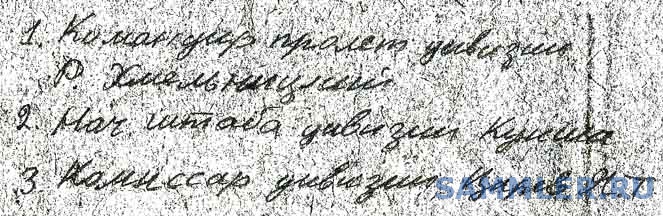 1. Командир пролет дивизии
Р. Хмельницкий
2. Нач штаба дивизии Кунька
3 Комиссар дивизии
SAMMLER.RU